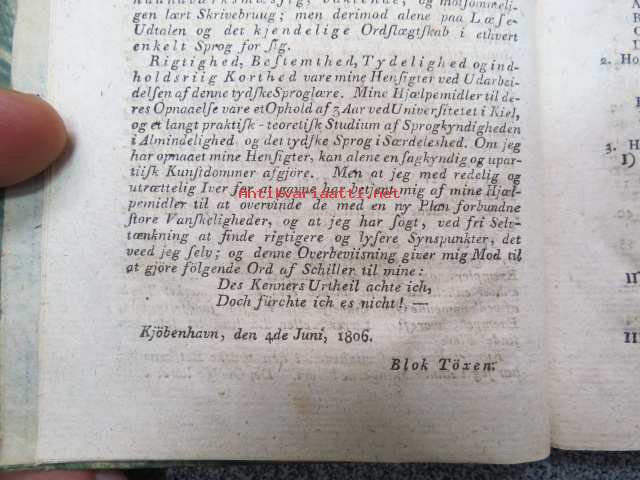 haandværksmæssig, vaklende, og møisommelig
gen lært Skrivebruug; men derimod alene paa Læse-
Udtalen og det kjendelige Ordslægtskab i ethvert
enkelt Sprog for sig.
Rigtighed, Bestemthed, Tydelighed og ind-
holdsriig Korthed vare mine Hensigter ved Udarbei-
delsen af denne tydske Sproglære. Mine Hjælpemidler til de-
res Opnaaelse vare et Ophold af 3 Aar ved Universitetet i Kiel,
og et langt praktisk-teoretisk Studium af Sprogkyndigheden
i Almindelighed og det tydske Sprog i Særdeleshed. Om jeg
har opnaaet mine Hensigter, kan alene en sagkyndig og upar-
tiisk Kunstdommer afgjøre. Men at jeg med redelig og
utrættelig Iver for at gavne har betjent mig af mine Hjæl-
pemidler til at overvinde de med en ny Plan forbundne
store Vanskeligheder, og at jeg har søgt, ved fri Selv-
tænkning at finde rigtigere og lysere Synspunkter, det
veed jeg selv; og denne Overbeviisning giver mig Mod til
at gjöre fölgende Ord af Schiller til mine:
Des Kenners Urtheil achte ich,
Doch fürchte ich es nicht! —
Kjöbenhavn, den 4de Juni, 1806.
Blok Töxen.
Antikvariaatti.net
2. Ho
3. H
1)
I
II
III